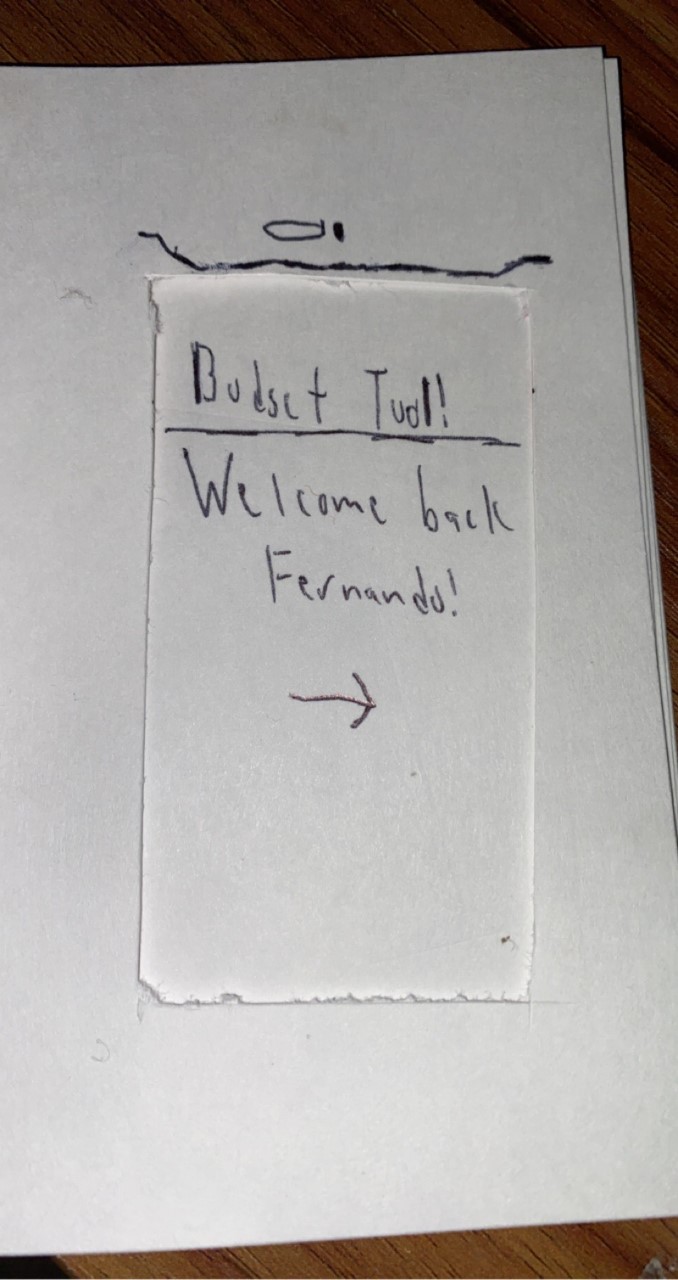 Budget Tool!
Welcome back
Fernando!
→